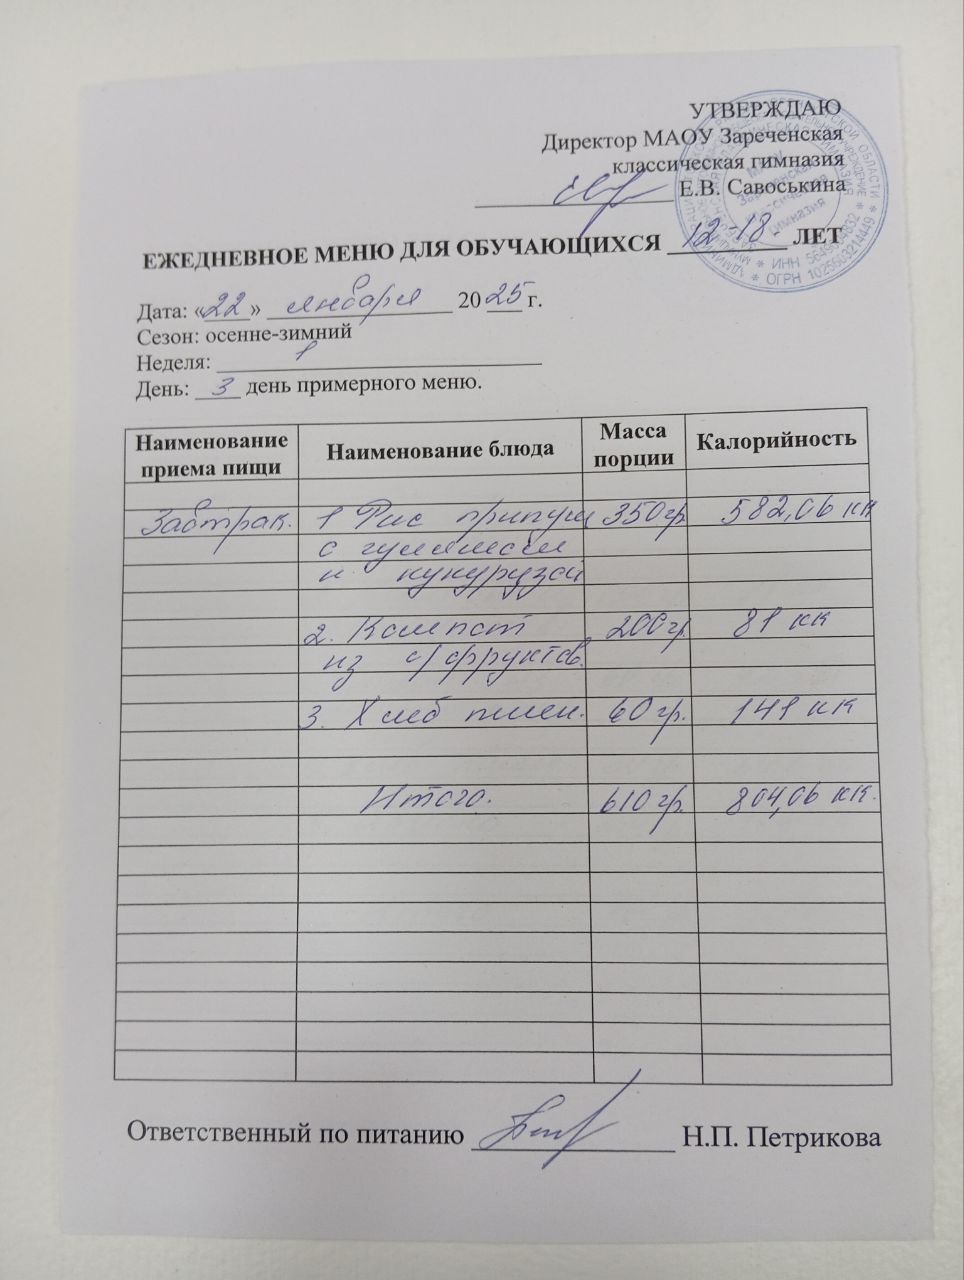 УТВЕРЖДАЮ
Директор МАОУ Зареченская
классическая гимназия
Е.В. Савоськина
ЕЖЕДНЕВНОЕ МЕНЮ ДЛЯ ОБУЧАЮЩИХСЯ 12-18 ЛЕТ
Дата: «22» января 2025 г.
Сезон: осенне-зимний
Неделя: 1
День: 3 день примерного меню.
Наименование приема пищи Наименование блюда Масса порции Калорийность
Завтрак. 1 Рис припущ 350гр 582,06 кк
с гуляшом
и кукурузой
2. Компот 200гр. 81 кк
из с/фруктов.
3. Хлеб пшен. 60гр. 141 кк
Итого. 610гр. 804,06 кк.
Ответственный по питанию Н.П. Петрикова